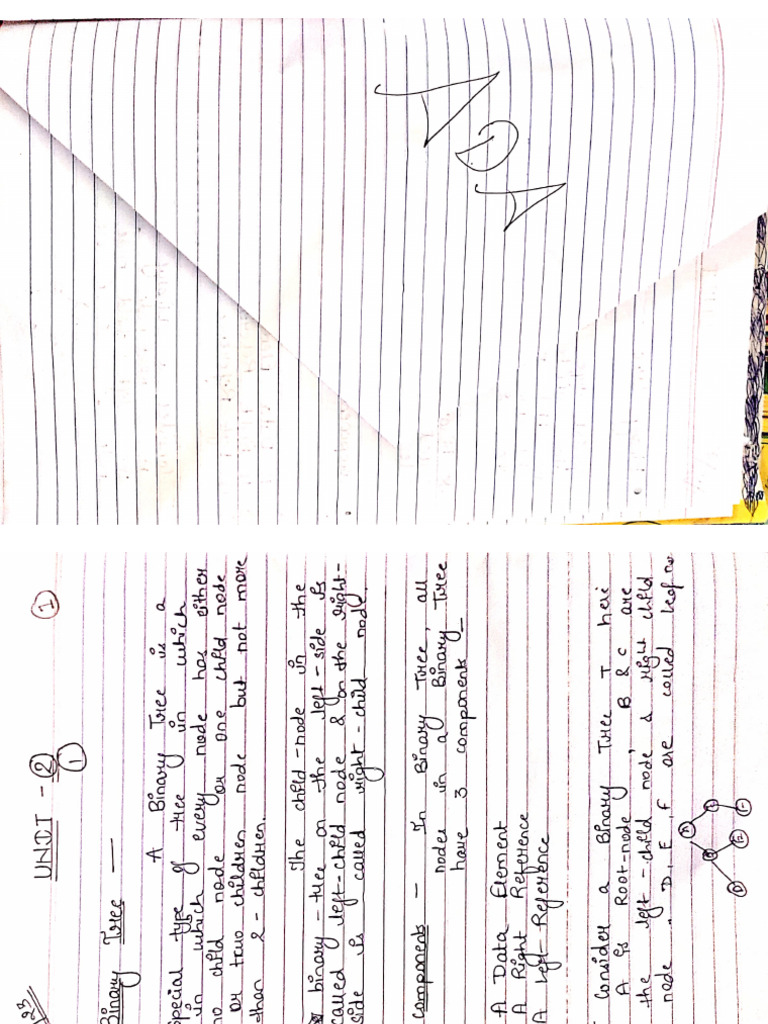 ADA
23
UNIT - 2
1
1
Binary Tree —
A Binary Tree is a
special type of tree in which
in which every node has either
no child node or one child node
or two children node but not more
than 2 - children.
The child-node in the
binary-tree on the left-side is
called left-child node & on the right-
side is called right-child node.
components — In Binary Tree, all
nodes in a Binary Tree
have 3 components _
A Data Element
A Right Reference
A Left Reference
Consider a Binary Tree T here
A is Root-node, B & C are
the left-child node & right child
node. D, E, F are called leaf no
A
B C
D E F